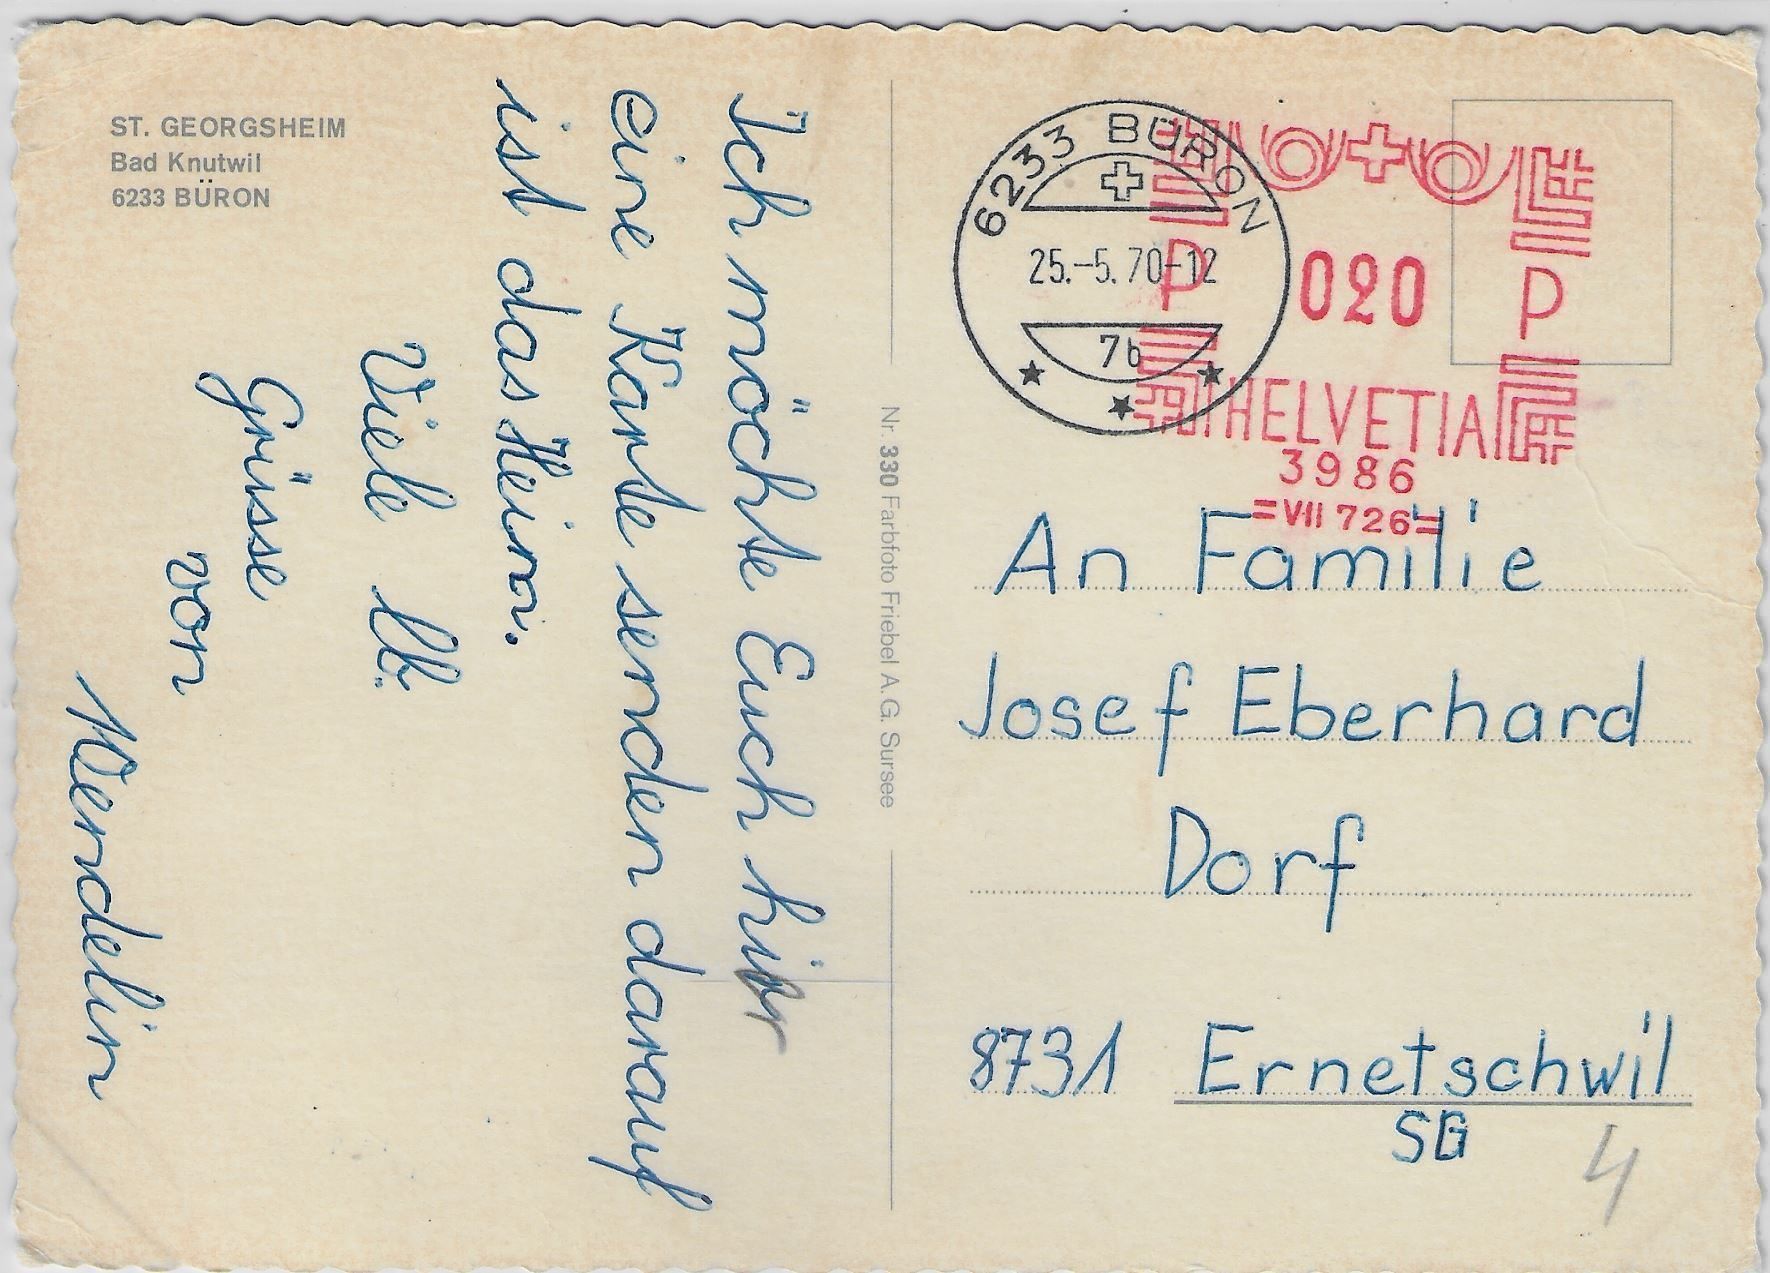 ST. GEORGSHEIM
Bad Knutwil
6233 BÜRON
Ich möchte Euch hier
eine Karte senden darauf
ist das Heim.
Viele lb.
Grüsse
von
Wendelin
Nr. 330 Farbfoto Friebel A.G. Sursee
6233 BÜRON
25.-5.70-12
7b
P 020 P
HELVETIA
3986
=VII 726=
An Familie
Josef Eberhard
Dorf
8731 Ernetschwil
SG
4